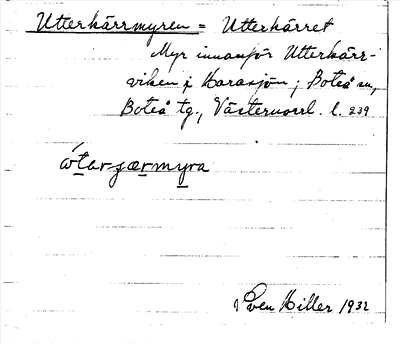 Utterkärrmyren = Utterkärret
Myr innanför Utterkärr-
viken i Karasjön; Boteå sn,
Boteå tg., Västernorrl. l. 239
Sven Hiller 1932